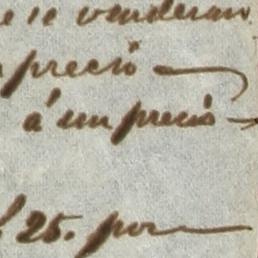 se venderan
precio
á un precio
25. por